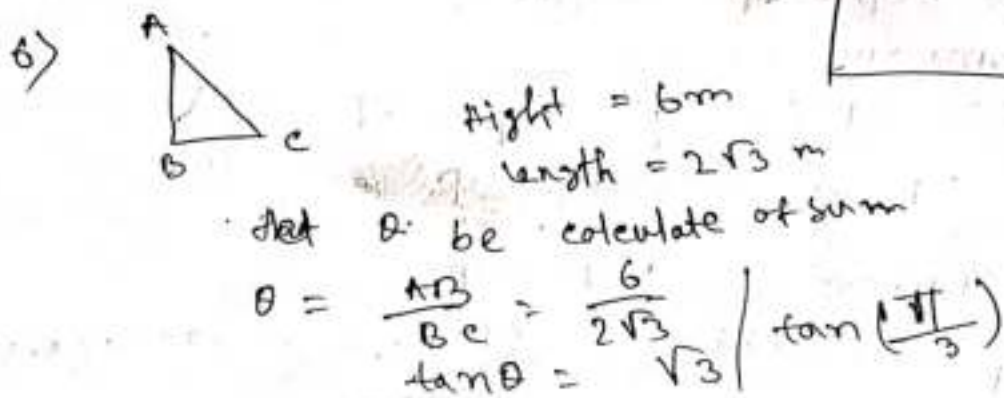 6)
A
B
C
Hight = 6m
Length = 2√3 m
Let θ be calculate of sum
θ = AB/BC = 6/2√3 | tan (π/3)
tanθ = √3